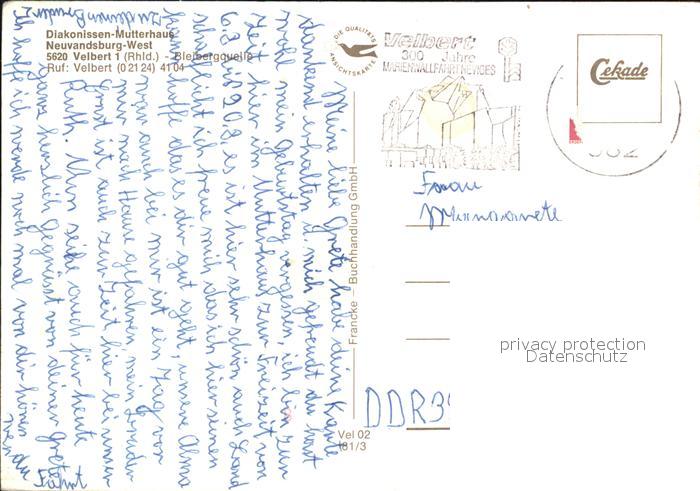 Diakonissen-Mutterhaus
Neuvandsburg-West
5620 Velbert 1 (Rhld.) - Bleibergquelle
Ruf: Velbert (02124) 4104
DIE QUALITÄTS ANSICHTSKARTE
Velbert
300 Jahre
MARIENWALLFAHRT NEVIGES
Cekade
562
Frau
DDR 3
privacy protection
Datenschutz
Francke – Buchhandlung GmbH
Vel 02
181/3
Meine liebe Grete habe deine Karte
dankend erhalten u. mich gefreudt du hast
wohl mein Geburtstag vergessen. ich bin zur
Zeit hier im Mutterhaus zur Freizeit von
6.8 bis 20.8 es ist hier sehr schön auch Land
schaftlich ich freue mich das ich hier seinen
kann hoffe das es dir gut geht, unsere Alma
war auch bei mir ist ein Zug vor
mir nach Hause gefahren mein Bruder
Ernst ist auch zur Zeit hier bei unser
Ruth. Nun seihe auch für heute
ganz herzlich Gegrüsst von deiner Grete
Ich hoffe ich werde noch mal von dir hören
wen du
Fährt
zu deinem Bruder